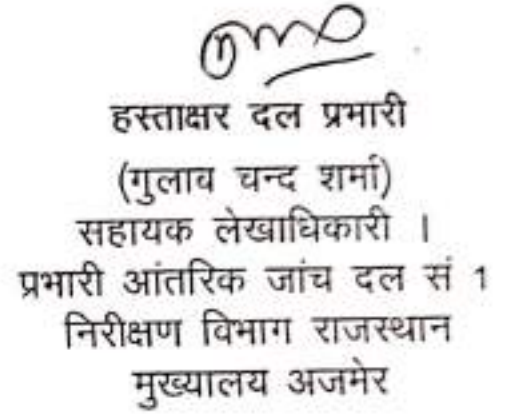 हस्ताक्षर दल प्रभारी
(गुलाव चन्द शर्मा)
सहायक लेखाधिकारी ।
प्रभारी आंतरिक जांच दल सं 1
निरीक्षण विभाग राजस्थान
मुख्यालय अजमेर